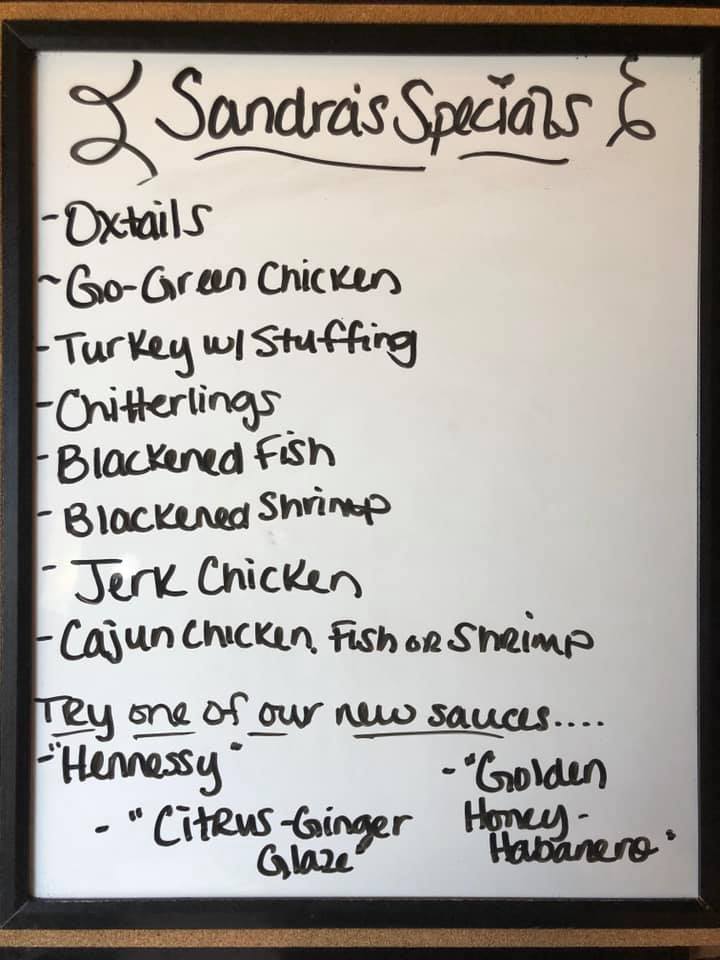 Sandra's Specials
- Oxtails
~ Go-Green Chicken
- Turkey w/ Stuffing
- Chitterlings
- Blackened Fish
- Blackened Shrimp
- Jerk Chicken
- Cajun Chicken, Fish or Shrimp
Try one of our new sauces....
- "Hennessy"
- "Citrus-Ginger
Glaze"
- "Golden
Honey-
Habanero"